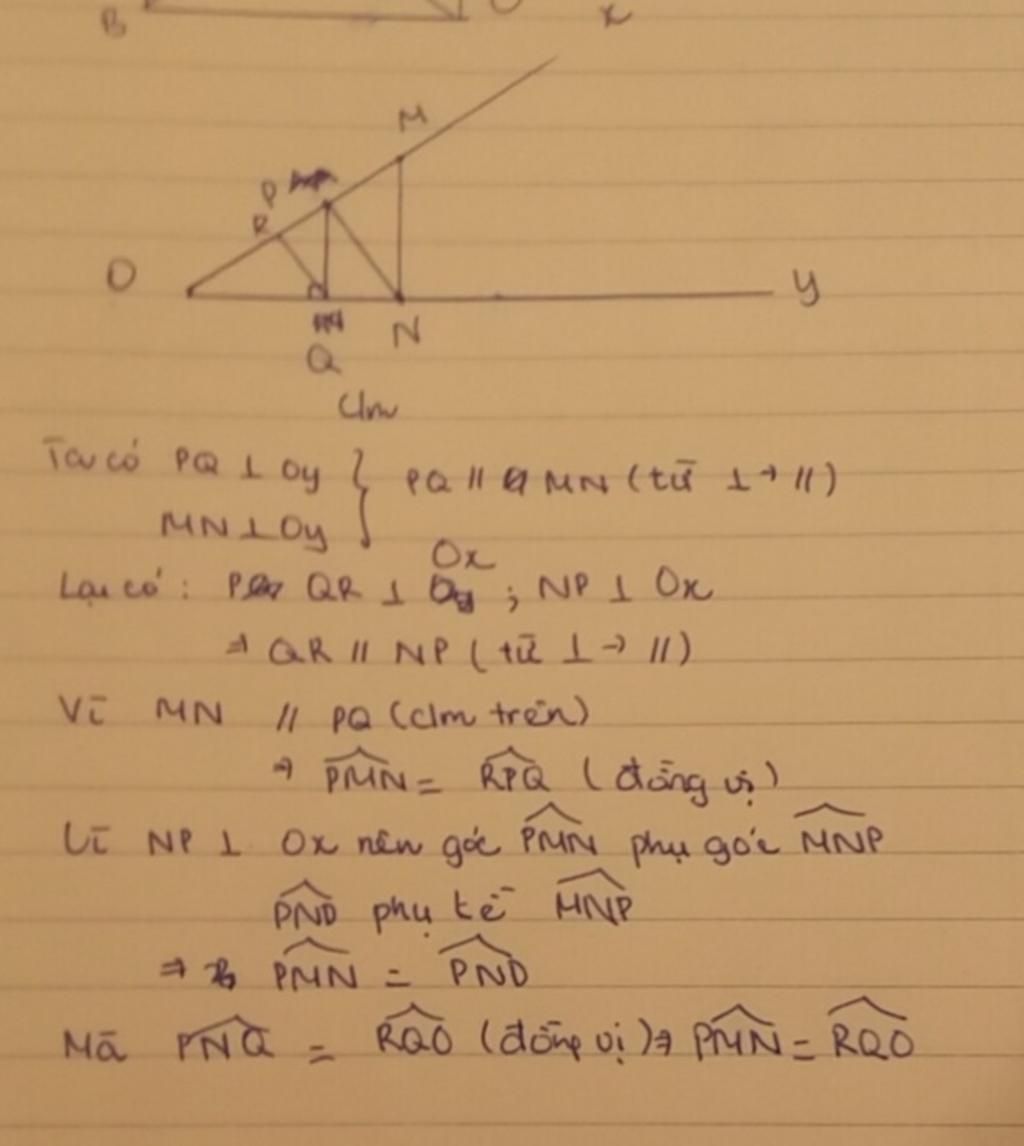 B C x
M
P
R
O y
N
Q
Clm
Ta có PQ ⊥ Oy } PQ // MN (từ ⊥ → //)
MN ⊥ Oy
Ox
Lại có: QR ⊥ ; NP ⊥ Ox
⇒ QR // NP (từ ⊥ → //)
Vì MN // PQ (clm trên)
⇒ PMN = RPQ (đồng vị)
Vì NP ⊥ Ox nên góc PMN phụ góc MNP
PNO phụ kề MNP
⇒ PMN = PNO
Mà PNQ = RQO (đồng vị) ⇒ PMN = RQO